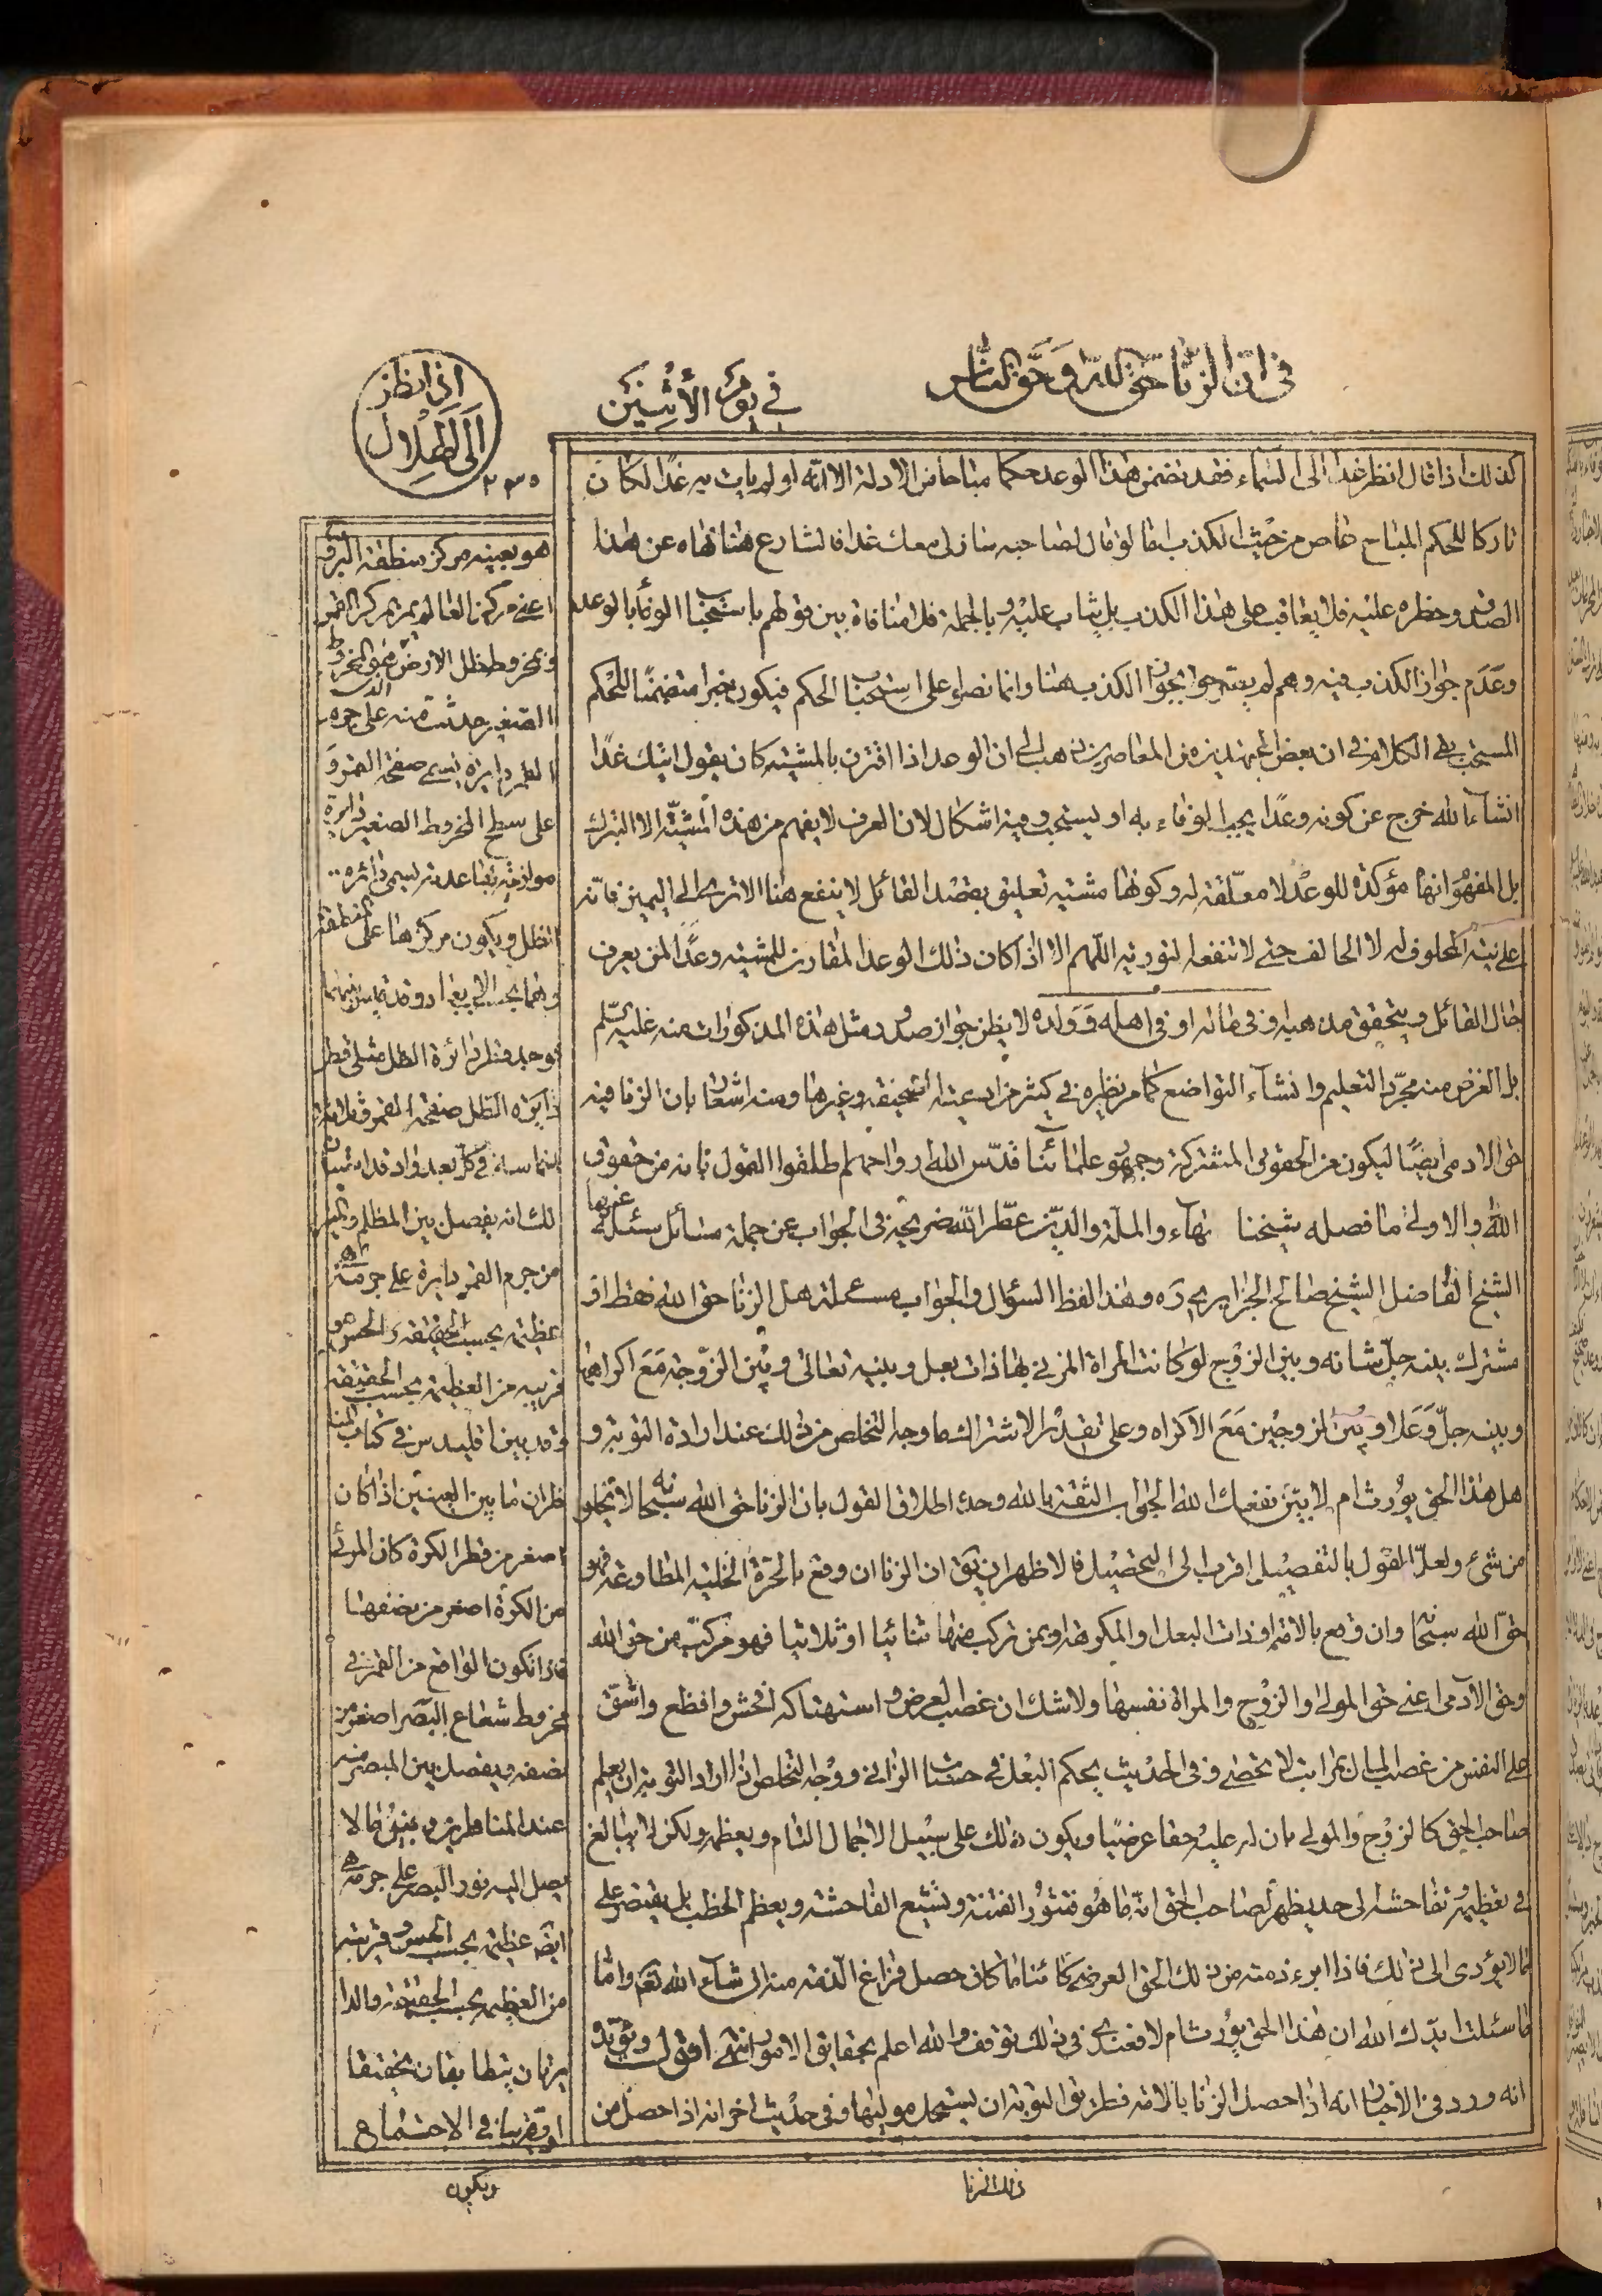 في ان الزنا حق الله وحق الناس
في يوم الأثنين
اذا نظر
الى الهلال
٢٣٥
كذلك اذا قال انظر غدا الى السماء فقد تضمن هذا الوعد حكما مباحا من الادلة الا انه لو لم يات به غدا لكان
تاركا للحكم المباح عاص من حيث الكذب اما لو قال لصاحبه سازنى معك غدا فالشارع هنا نهاه عن هذا
الصدق وحظره عليه فلا يعاقب على هذا الكذب بل يثاب عليه وبالجملة فلا منافاة بين قولهم باستحباب الوفاء بالوعد
وعدم جواز الكذب فيه وهم لم يصرحوا بجواز الكذب هنا وانما نصوا على استحباب الحكم فيكون خبرا متضمنا للحكم
المستحب بقي الكلام في ان بعض المجتهدين من المعاصرين ذهب الى ان الوعد اذا اقترن بالمشيته كان يقول اتيك غدا
انشاء الله خرج عن كونه وعدا يجب الوفاء به او يستحب وفيه اشكال لان العرف لا يفهم من هذه المشيّة الا التبرك
بل المفهوم انها مؤكدة للوعد لا معلّقة له وكونها مشيته تعليق بقصد القائل لا ينفع هنا الا ترى الى اليمين فانه
على نية المحلوف له لا الحالف حتى لا تنفعه لتورية اللهم الا اذا كان ذلك الوعد المقارن للمشيته وعدا لمن يعرف
حال القائل ويتحقق مذهبه وفي ماله او في اهله وولده لا يظن جواز صدور مثل هذه المذكورات منه عليه السلم
بل الغرض منه مجرد التعليم وانشاء التواضع كما مر نظيره في كثير من ادعيته الصحيفة وغيرها ومنه اشعار بان الزنا فيه
حق الادمى ايضا ليكون من الحقوق المشتركة وجمهور علمائنا قدس الله ارواحهم اطلقوا القول بانه من حقوق
الله والاولى ما فصله شيخنا بهاء الملة والدين عطر الله ضريحه في الجواب عن جملة مسائل سئله عنها
الشيخ الفاضل الشيخ صالح الجزايرى ره وهذا لفظ السؤال والجواب مسئلة هل الزنا حق الله فقط او
مشترك بينه جل شانه وبين الزوج لو كانت المراة المزني بها ذات بعل وبينه تعالى وبين الزوجة مع اكراهها
وبينه جل وعلا وبين الزوجين مع الاكراه وعلى تقدير الاشتراك ما وجه التخلص من ذلك عند ارادة التوبة و
هل هذا الحق يورث ام لا بينوا نفعك الله الجواب الثقة بالله وحده اطلاق القول بان الزنا حق الله سبحانه لا يخلو
من شئ ولعل القول بالتفصيل اقرب الى التحصيل فالاظهر ان يق ان الزنا ان وقع بالحرة الخلية المطاوعة فهو
حق الله سبحانه وان وقع بالامة او ذات البعل او المكرهة او بمن تركب منها ثنائيا او ثلاثيا فهو مركب من حق الله
وحق الآدمى اعنى حق المولى او الزوج والمراة نفسها ولا شك ان غصب العرض واستهتاكه افحش وافظع واشق
على النفس من غصب المال بمراتب لا تحصى وفي الحديث يحكم البعل في حسنات الزاني ووجه التخلص اذا اراد التوبة ان يعلم
صاحب الحق كالزوج والمولى بان له عليه حقا عرضيا ويكون ذلك على سبيل الاجمال التام ويعظمه ولكن لا يبالغ
في تعظيمه وتفاحشه الى حد يظهر لصاحب الحق انه ما هو فتثور الفتنة وتشيع الفاحشة ويعظم الخطب بل يقتصر على
ما لا يؤدى الى ذلك فاذا ابرء ذمته من ذلك الحق العرضى كائنا ما كان حصل فراغ الذمة منه ان شاء الله تعم واما
ما سئلت ايدك الله ان هذا الحق يورث ام لا فعندى في ذلك توقف والله اعلم بحقايق الامور انتهى اقول ويؤيده
انه ورد في الاخبار انه اذا حصل الزنا بالامة فطريق التوبة ان يستحل موليها وفي حديث اخر انه اذا حصل من
ذلك الزنا
هو بعينه مركز منطقة البروج
اعنى مركز العالم يمر بمركز القمر
ومخروط ظل الارض
الصغير حدثت منه على جرم
القمر دايرة يسمى صفحة القمر و
على سطح المخروط الصغير دايرة
موازية لقاعدته يسمى دائرة
الظل ويكون مركزها على منطقة
توجد قطر دائرة الظل مثلى قطر
دايرة الظل صفحة القمر
لك انه يفصل بين المظلم والمنير
من جرم القمر دايرة على جرمه
عظيمة بحسب الحقيقة والحس
قريبه من العظيمة بحسب الحقيقة
وقد بين اقليدس في كتاب المناظر
ان ما بين العينين اذا كان
اصغر من قطر الكرة كان المرئى
من الكرة اصغر من نصفها
فاذا تكون الواقع من القمر في
مخروط شعاع البصر اصغر من
نصفه ويفصل بين المبصر منه
عند المناظرين وبين ما لا
يصل اليه نور البصر على جرمه
ايضا عظيمة بحسب الحس قريبة
من العظيمة بحسب الحقيقة والدا
يرتان يتطابقان تحقيقا
او تقريبا في الاجتماع
ويكون